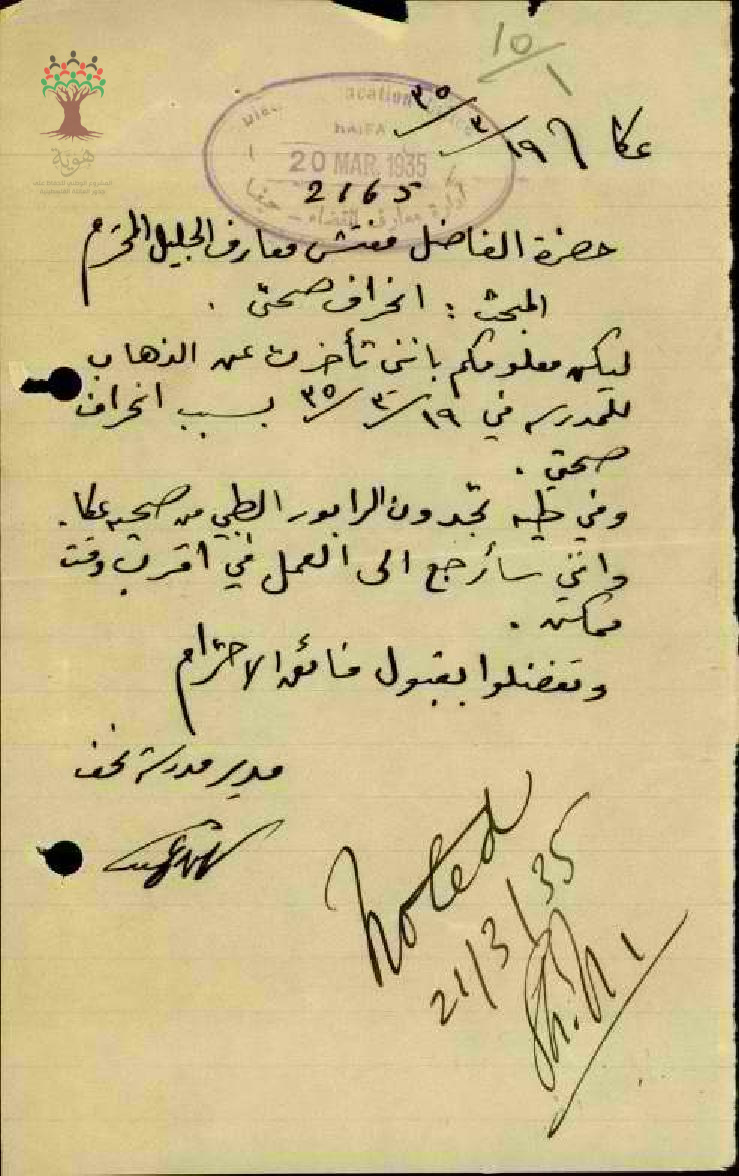 10/1
هوية
عكا ١٩/٣/٣٥
HAIFA
20 MAR. 1935
2165
إدارة معارف القضاء - حيفا
حضرة الفاضل مفتش معارف الجليل المحترم
المبحث : انحراف صحتي .
ليكن معلومكم بانني تأخرت عن الذهاب
للمدرسه في ١٩/٣/٣٥ بسبب انحراف
صحتي .
وفي طيه تجدون الرابور الطبي من صحيه عكا .
وانني سأرجع الى العمل في اقرب وقت
ممكن .
وتفضلوا بقبول فائق الاحترام
مدير مدرسة نحف
Noted
21/3/35